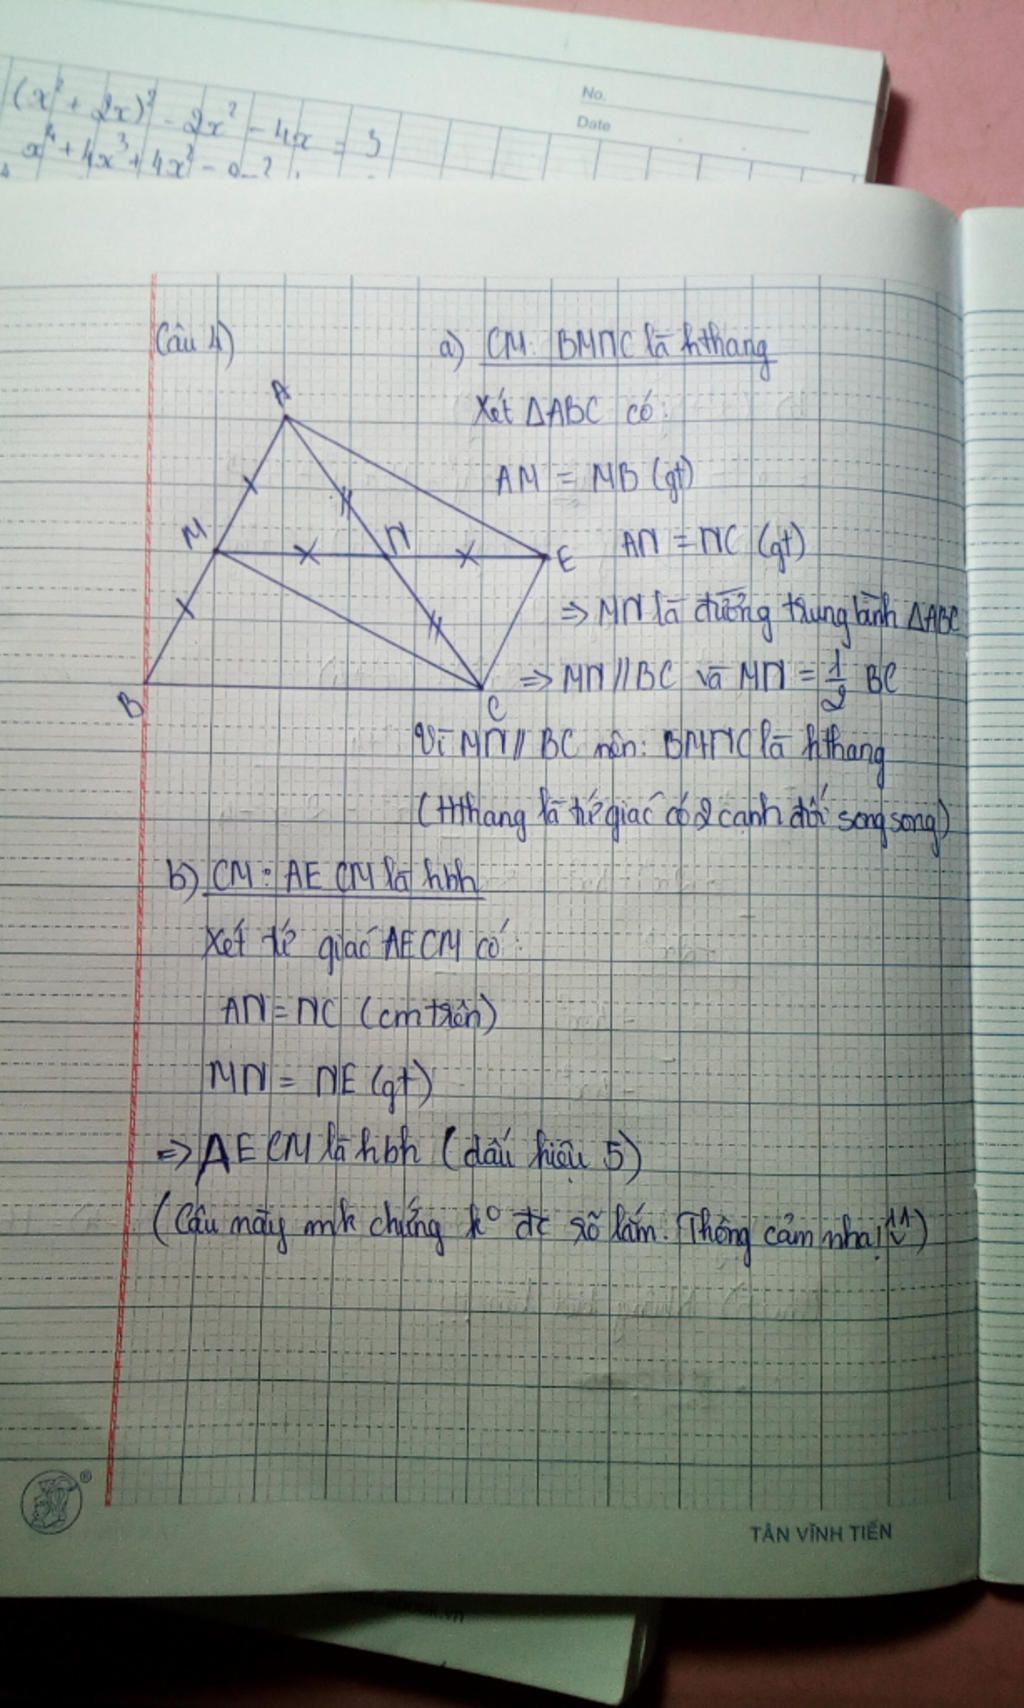 (x² + 2x)² - 2x² - 4x = 3
x⁴ + 4x³ + 4x² -
No.
Date
Câu 4)
a) CM: BMNC là hthang
Xét ΔABC có:
A
AM = MB (gt)
M
N
E
AN = NC (gt)
=> MN là đường trung bình ΔABC
=> MN // BC và MN = 1/2 BC
B
C
Vì MN // BC nên: BMNC là hthang
(Hthang là tứ giác có 2 cạnh đối song song)
b) CM: AECM là hbh
Xét tứ giác AECM có:
AN = NC (cm trên)
MN = NE (gt)
=> AECM là hbh (dấu hiệu 5)
(Câu này mk chứng k° đc rõ lắm. Thông cảm nha! ^^)
®
TÂN VĨNH TIẾN